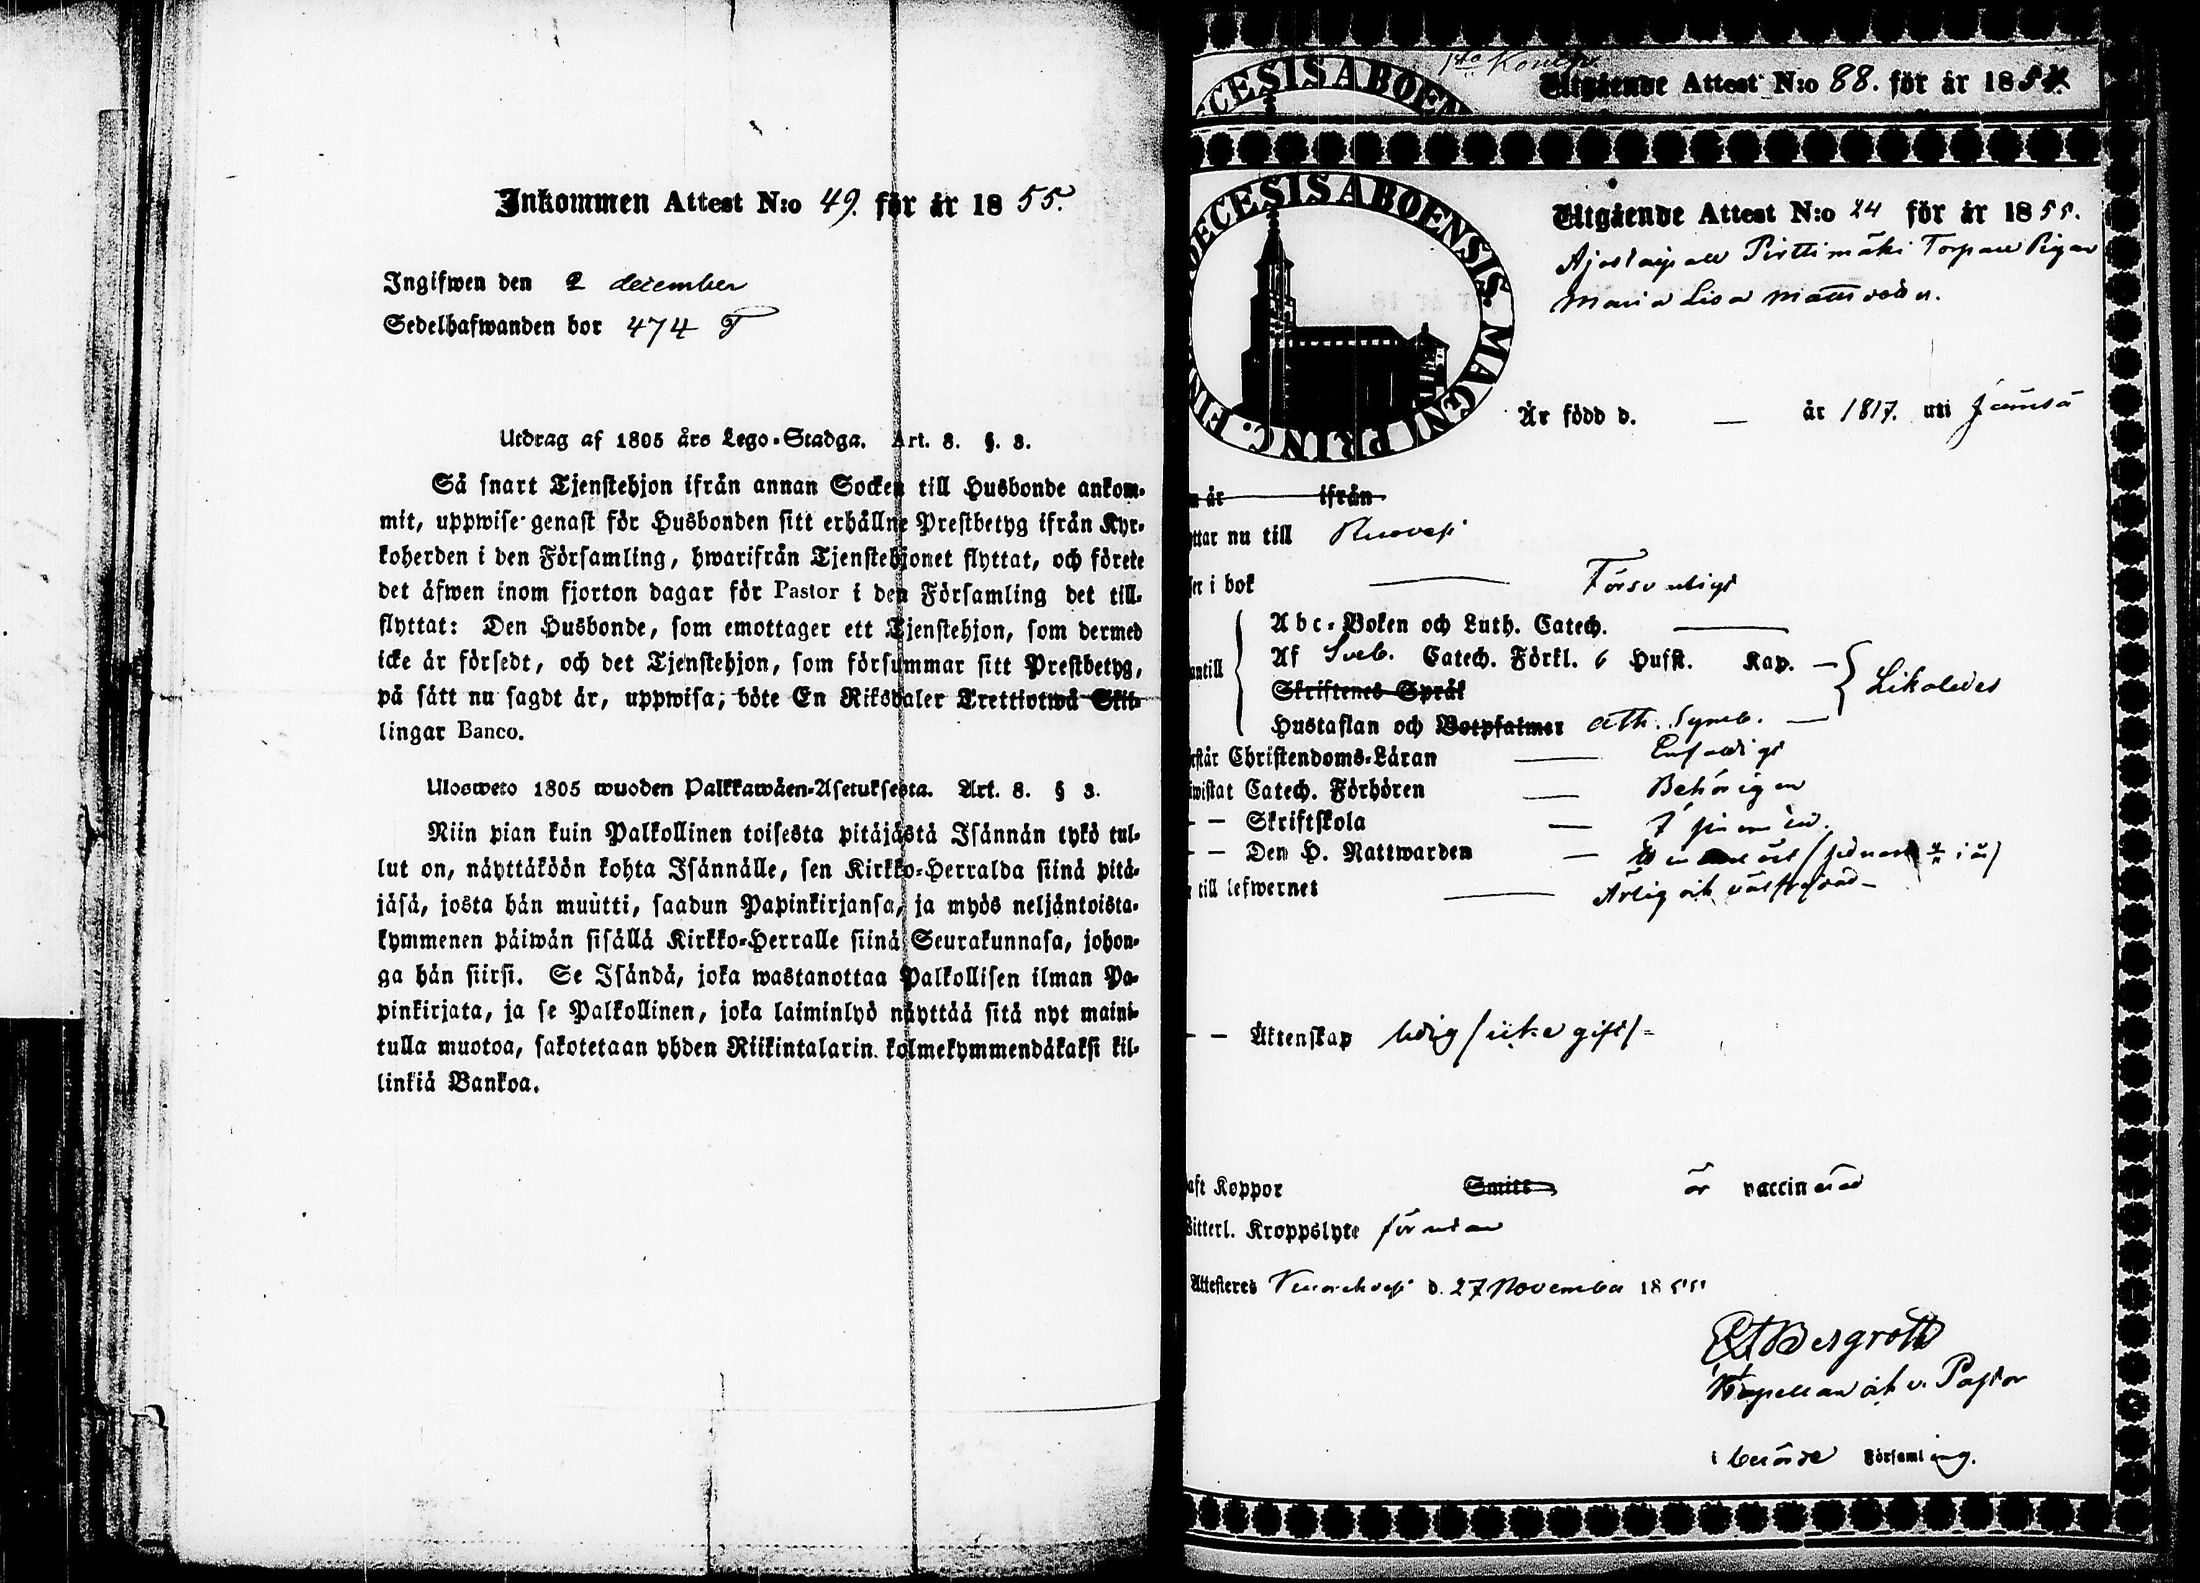 Inkommen Attest N:o 49. för år 1855.
Ingifwen den 2 december
Sedelhafwanden bor 474 T
Utdrag af 1805 års Lego-Stadga. Art. 8. §. 3.
Så snart Tjenstehjon ifrån annan Socken till Husbonde ankom-
mit, uppwise genast för Husbonden sitt erhållne Prestbetyg ifrån Kyr-
koherden i den Församling, hwarifrån Tjenstehjonet flyttat, och förete
det äfwen inom fjorton dagar för Pastor i den Församling det till-
flyttat: Den Husbonde, som emottager ett Tjenstehjon, som dermed
icke är försedt, och det Tjenstehjon, som försummar sitt Prestbetyg,
på sätt nu sagdt är, uppwisa, böte En Riksdaler Trettiotwå Skil-
lingar Banco.
Ulosweto 1805 wuoden Palkkawäen-Asetuksesta. Art. 8. § 3.
Niin pian kuin Palkollinen toisesta pitäjästä Isännän tykö tul-
lut on, näyttäköön kohta Isännälle, sen Kirkko-Herralda siinä pitä-
jäsä, josta hän muutti, saadun Papinkirjansa, ja myös neljäntoista-
kymmenen päiwän sisällä Kirkko-Herralle siinä Seurakunnasa, johon-
ga hän siirsi. Se Isändä, joka wastanottaa Palkollisen ilman Pa-
pinkirjata, ja se Palkollinen, joka laiminlyö näyttää sitä nyt maini-
tulla muotoa, sakotetaan yhden Riikintalarin kolmekymmendäkaksi kil-
linkiä Bankoa.
Utgående Attest N:o 88. för år 185
ECESIS ABOEN
DECESIS ABOENSIS. MAGNI PRINC. FIN
Utgående Attest N:o 24 för år 1855.
Pirttimäki Torpare Pigan
Maria Lisa Mattsdoter.
Är född d. — år 1817. uti Jämsä
år ifrån
ttar nu till Ruovesi
ser i bok — Försvarligt
Abc-Boken och Luth. Catech. —
Af Sveb. Catech. Förkl. 6 Hufst. Kap. — Likaledes
antill
Skriftenes Språk
Hustaflan och Botpsalmer Ath. Symb. —
rstår Christendoms-Läran — Enfaldigt
iwistat Catech. Förhören — Behörigen
— — Skriftskola —
— — Den H. Nattwarden —
till lefwernet — Ärlig och välfrejdad —
— — Äktenskap ledig /icke gift/
aft Koppor Smitt är vaccinerad
Witterl. Kroppslyte förutan
Attesteres d. 27 November 1855
Bergroth
Kapellan och v. Pastor
i berörde Församling.